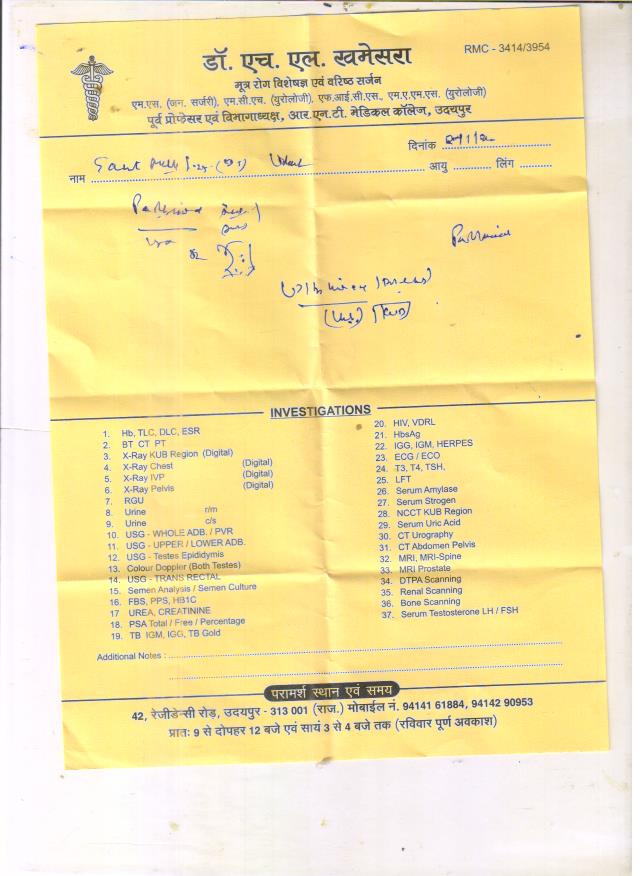 डॉ. एच. एल. खमेसरा
RMC - 3414/3954
मूत्र रोग विशेषज्ञ एवं वरिष्ठ सर्जन
एम.एस. (जन. सर्जरी), एम.सी.एच. (युरोलोजी), एफ.आई.सी.एस., एम.ए.एम.एस. (युरोलोजी)
पूर्व प्रोफेसर एवं विभागाध्यक्ष, आर.एन.टी. मेडिकल कॉलेज, उदयपुर
दिनांक
नाम आयु लिंग
INVESTIGATIONS
1. Hb, TLC, DLC, ESR
2. BT CT PT
3. X-Ray KUB Region (Digital)
4. X-Ray Chest (Digital)
5. X-Ray IVP (Digital)
6. X-Ray Pelvis (Digital)
7. RGU
8. Urine r/m
9. Urine c/s
10. USG - WHOLE ADB. / PVR
11. USG - UPPER / LOWER ADB.
12. USG - Testes Epididymis
13. Colour Doppler (Both Testes)
14. USG - TRANS RECTAL
15. Semen Analysis / Semen Culture
16. FBS, PPS, HB1C
17. UREA, CREATININE
18. PSA Total / Free / Percentage
19. TB IGM, IGG, TB Gold
20. HIV, VDRL
21. HbsAg
22. IGG, IGM, HERPES
23. ECG / ECO
24. T3, T4, TSH,
25. LFT
26. Serum Amylase
27. Serum Strogen
28. NCCT KUB Region
29. Serum Uric Acid
30. CT Urography
31. CT Abdomen Pelvis
32. MRI, MRI-Spine
33. MRI Prostate
34. DTPA Scanning
35. Renal Scanning
36. Bone Scanning
37. Serum Testosterone LH / FSH
Additional Notes :
परामर्श स्थान एवं समय
42, रेजीडेन्सी रोड़, उदयपुर - 313 001 (राज.) मोबाईल नं. 94141 61884, 94142 90953
प्रातः 9 से दोपहर 12 बजे एवं सायं 3 से 4 बजे तक (रविवार पूर्ण अवकाश)